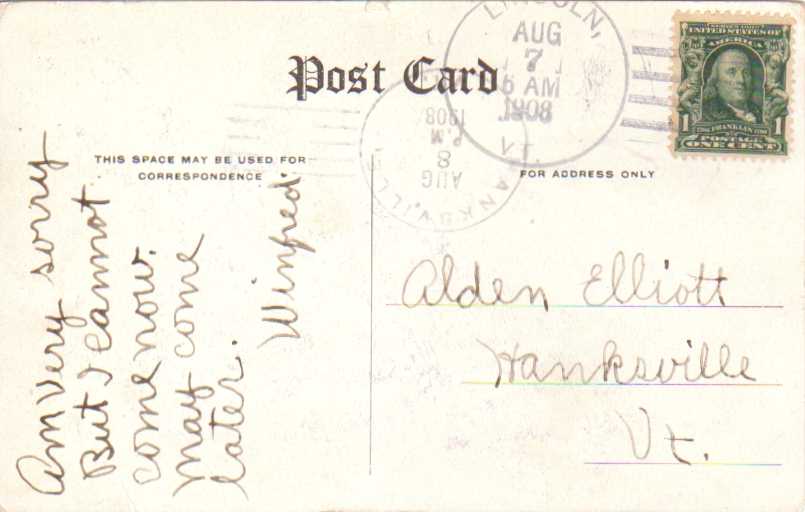 LINCOLN,
AUG
7
5 AM
1908
UNITED STATES OF
AMERICA
1 FRANKLIN 1
POSTAGE
ONE CENT
Post Card
HANKSVILLE
AUG
8
P.M
1908
THIS SPACE MAY BE USED FOR
CORRESPONDENCE
FOR ADDRESS ONLY
Am Very sorry
But I cannot
come now.
May come
later.
Winfred.
Alden Elliott
Hanksville
Vt.